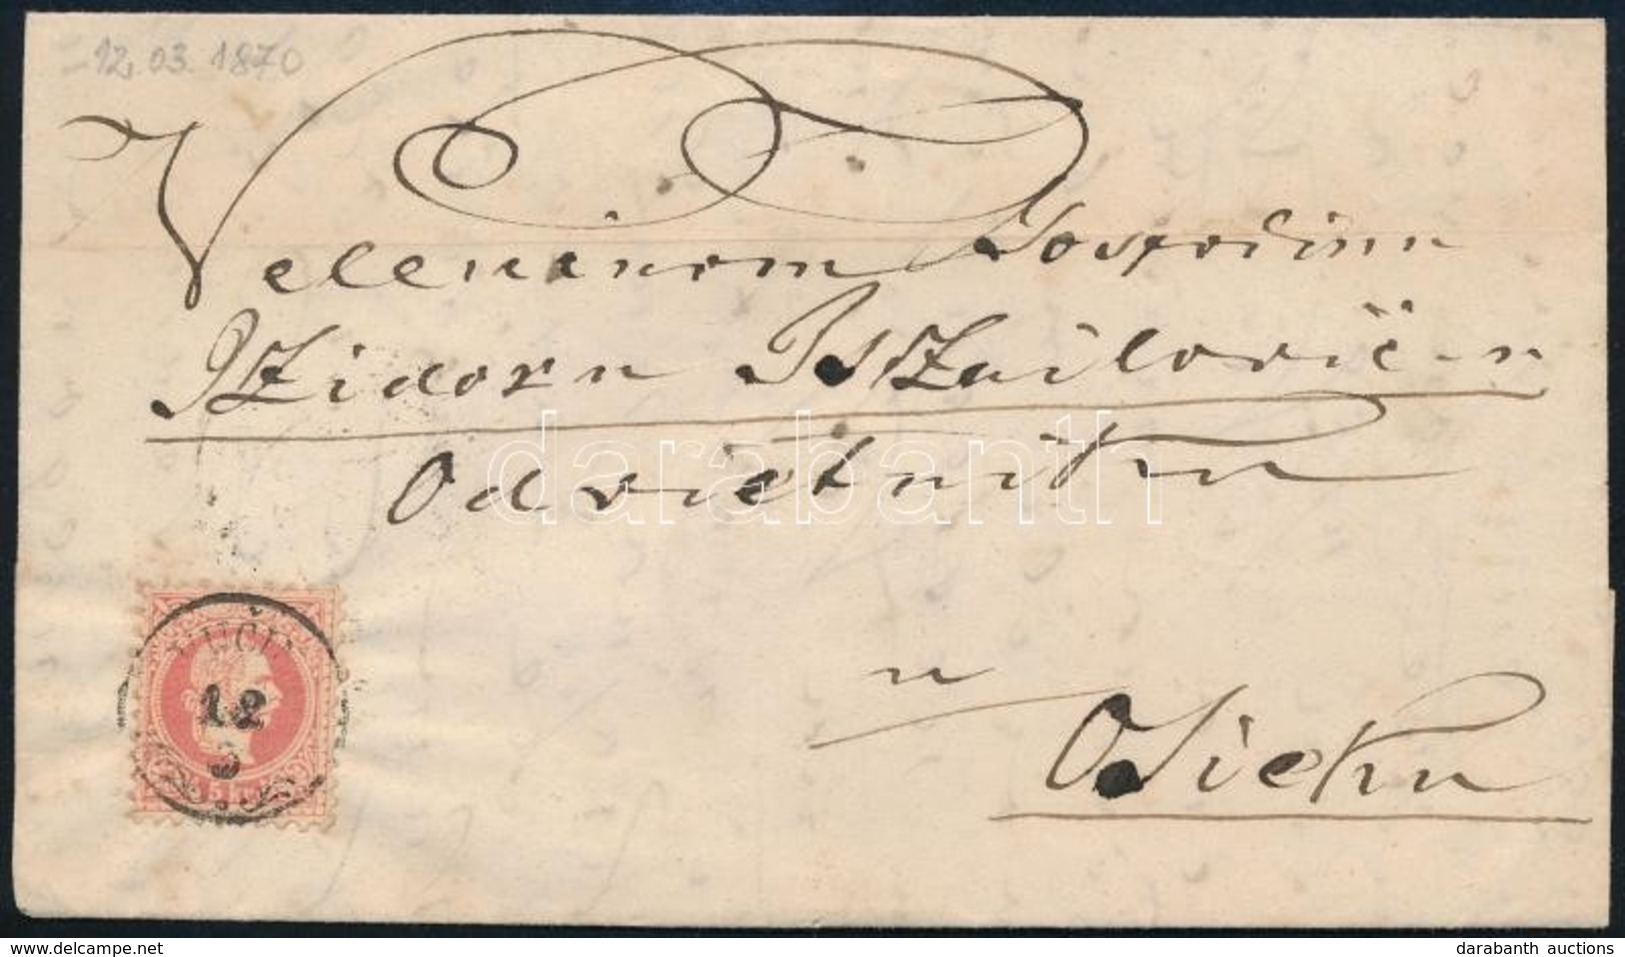 12. 03. 1870
Velenenom Gospodinu
Iszidoru Iszailović-u
Odvietniku
u
Osieku
VUČIN
12
3
5 kr
darabanth
© www.delcampe.net
darabanth auctions